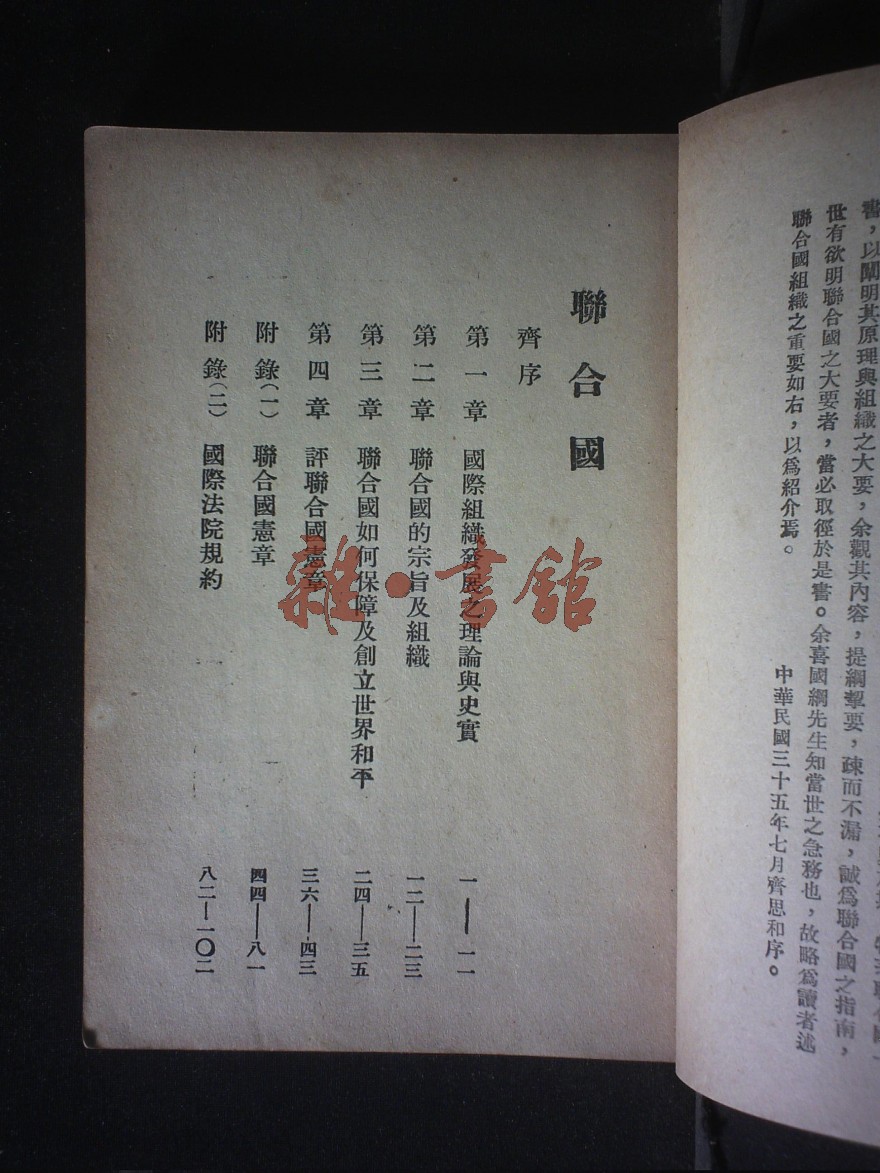 書，以闡明其原理與組織之大要，余觀其內容，提綱挈要，疎而不漏，誠為聯合國之指南，
世有欲明聯合國之大要者，當必取徑於是書。余喜國綱先生知當世之急務也，故略為讀者述
聯合國組織之重要如右，以為紹介焉。
中華民國三十五年七月齊思和序。
聯合國
齊序
第一章 國際組織發展之理論與史實 一—一一
第二章 聯合國的宗旨及組織 一二—二三
第三章 聯合國如何保障及創立世界和平 二四—三五
第四章 評聯合國憲章 三六—四三
附錄(一) 聯合國憲章 四四—八一
附錄(二) 國際法院規約 八二—一〇二
雜·書館